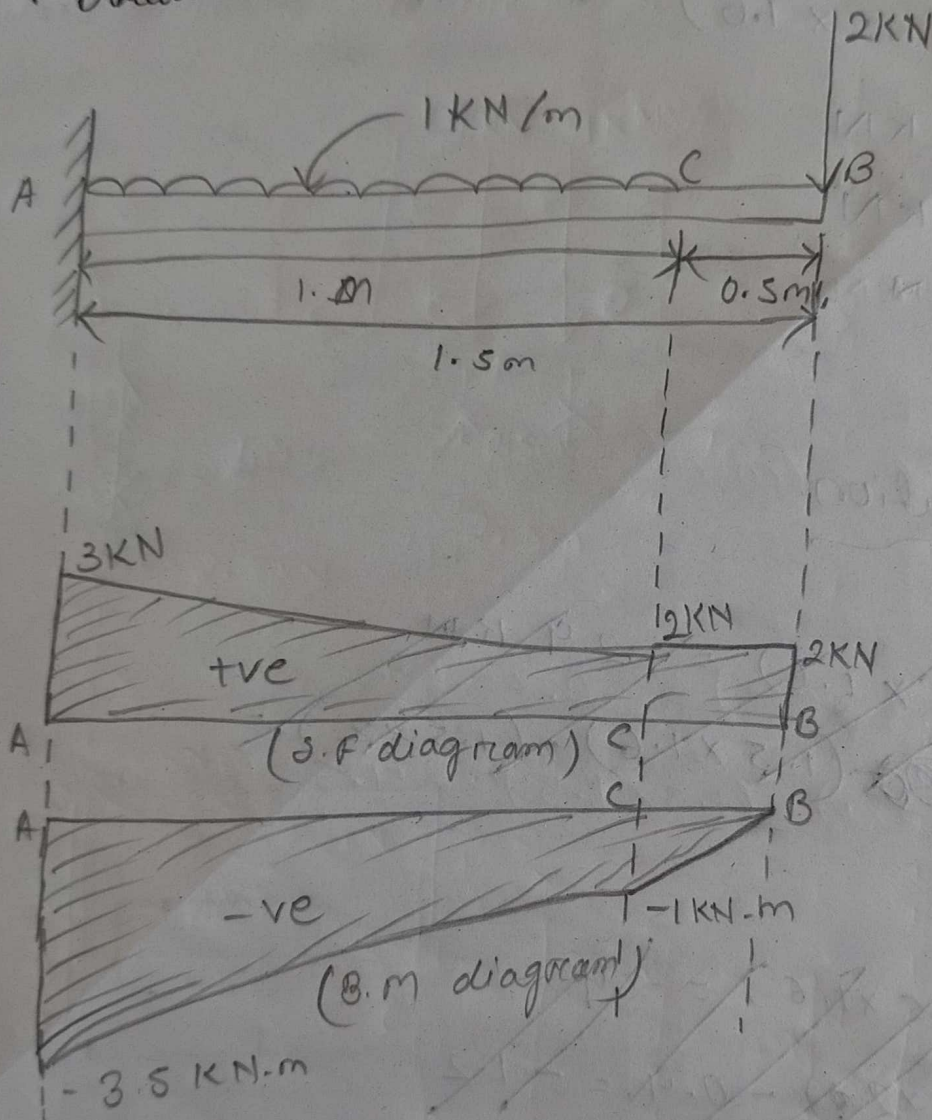 2KN
1KN/m
A
C
B
1.m
0.5m
1.5m
3KN
2KN
2KN
+ve
A
(S.F. diagram)
C
B
A
C
B
-ve
-1KN-m
(B.M diagram)
-3.5 KN.m